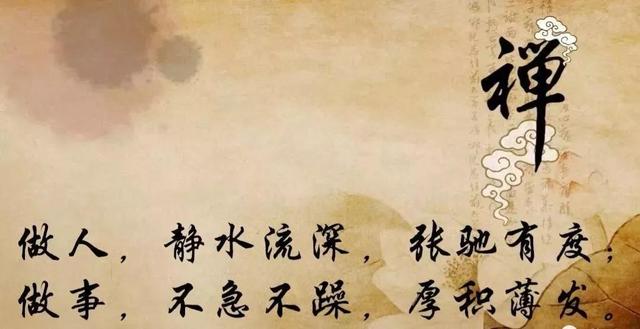 禅
做人，静水流深，张驰有度；
做事，不急不躁，厚积薄发。